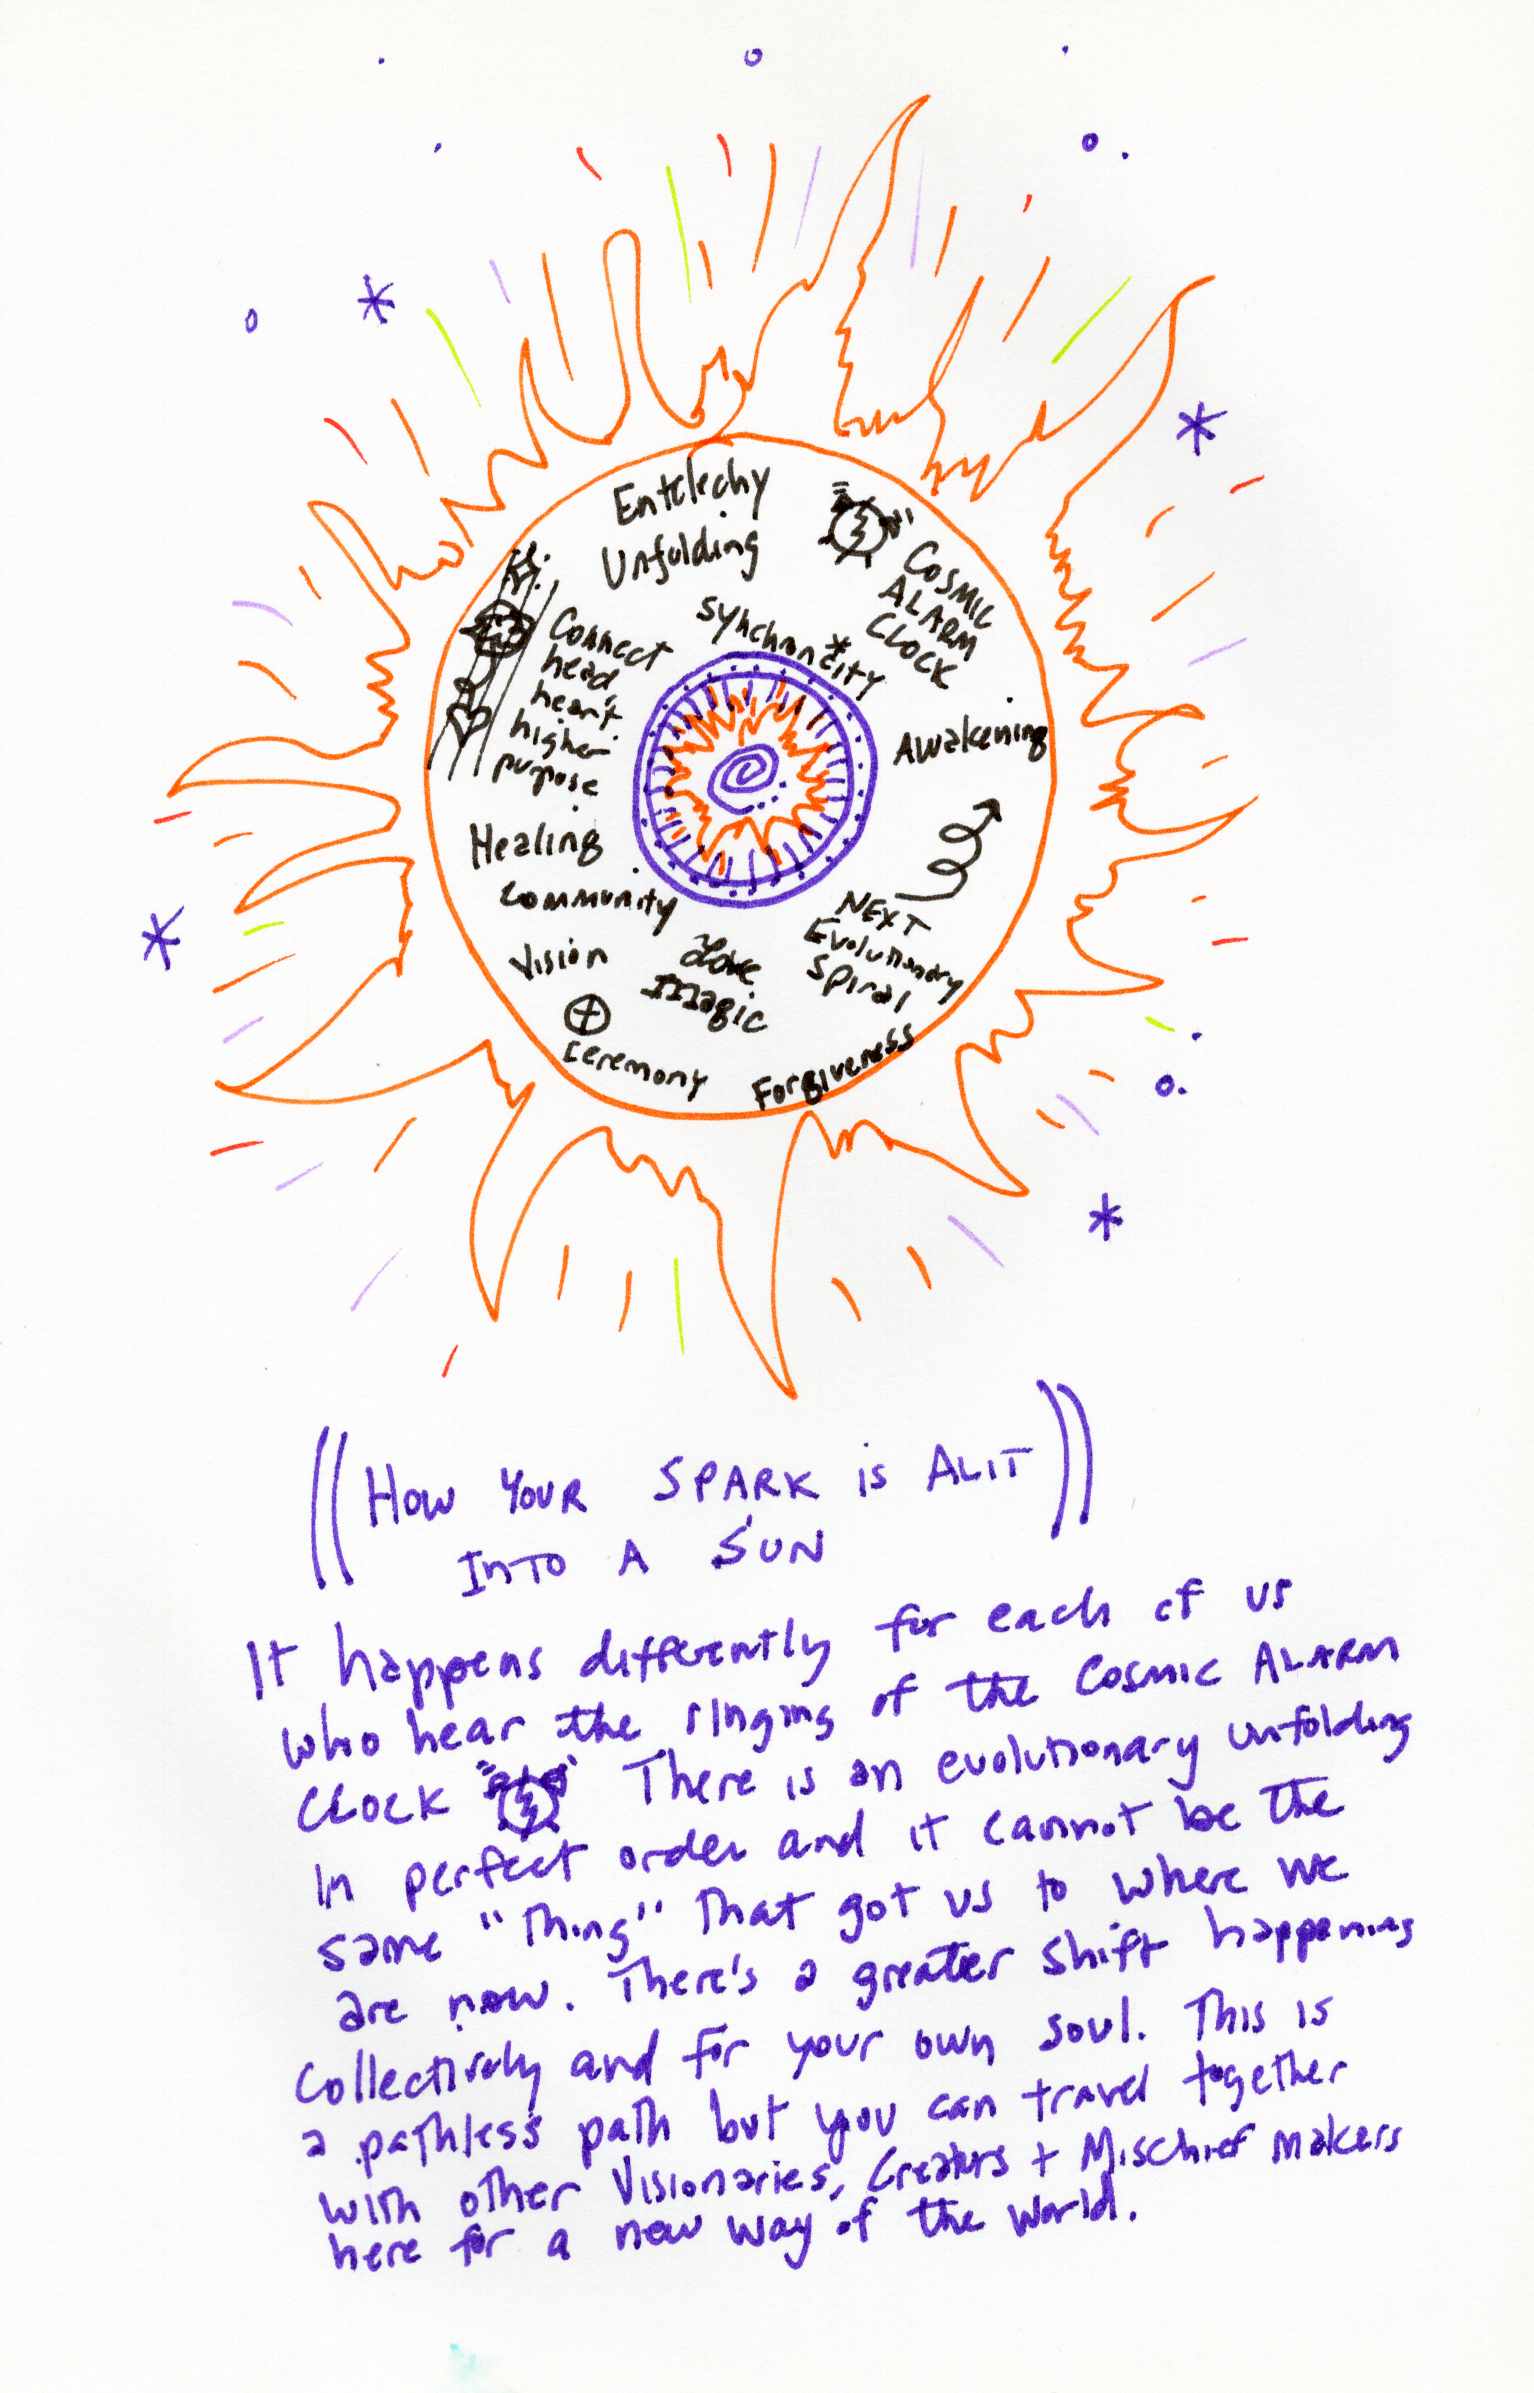 Entelechy
Unfolding
COSMIC
ALARM
CLOCK
Synchroncity
Connect
head
heart
higher
purpose
Awakening
Healing
Community
NEXT
Evolutionary
Spiral
Vision
Love
Magic
Ceremony
Forgiveness
((How YOUR SPARK is ALIT))
INTO A SUN
It happens differently for each of us
who hear the ringing of the Cosmic ALARM
CLOCK There is an evolutionary unfolding
in perfect order and it cannot be the
same "Thing" That got us to where we
are now. There's a greater shift happening
Collectively and for your own soul. This is
a pathless path but you can travel together
with other Visionaries, Creators + Mischief makers
here for a new way of the world.